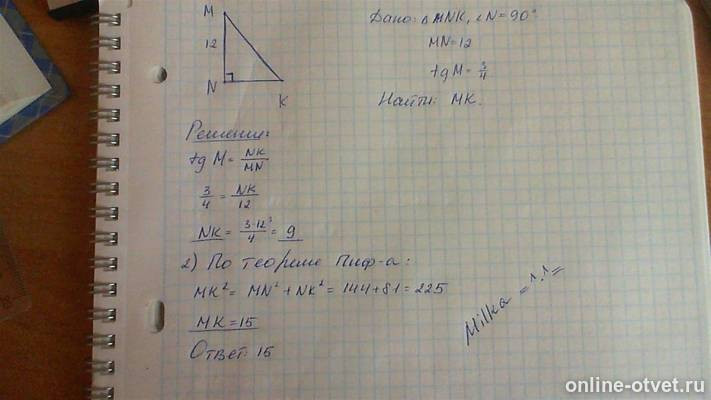 M
12
N
K
Дано: △ MNK, ∠N = 90°
MN = 12
tg M = 3/4
Найти: MK.
Решение:
tg M = NK/MN
3/4 = NK/12
NK = 3·12³/4 = 9
2) По теореме Пиф-а:
MK² = MN² + NK² = 144 + 81 = 225
MK = 15
Ответ: 15
Milka = 1.1 =
online-otvet.ru